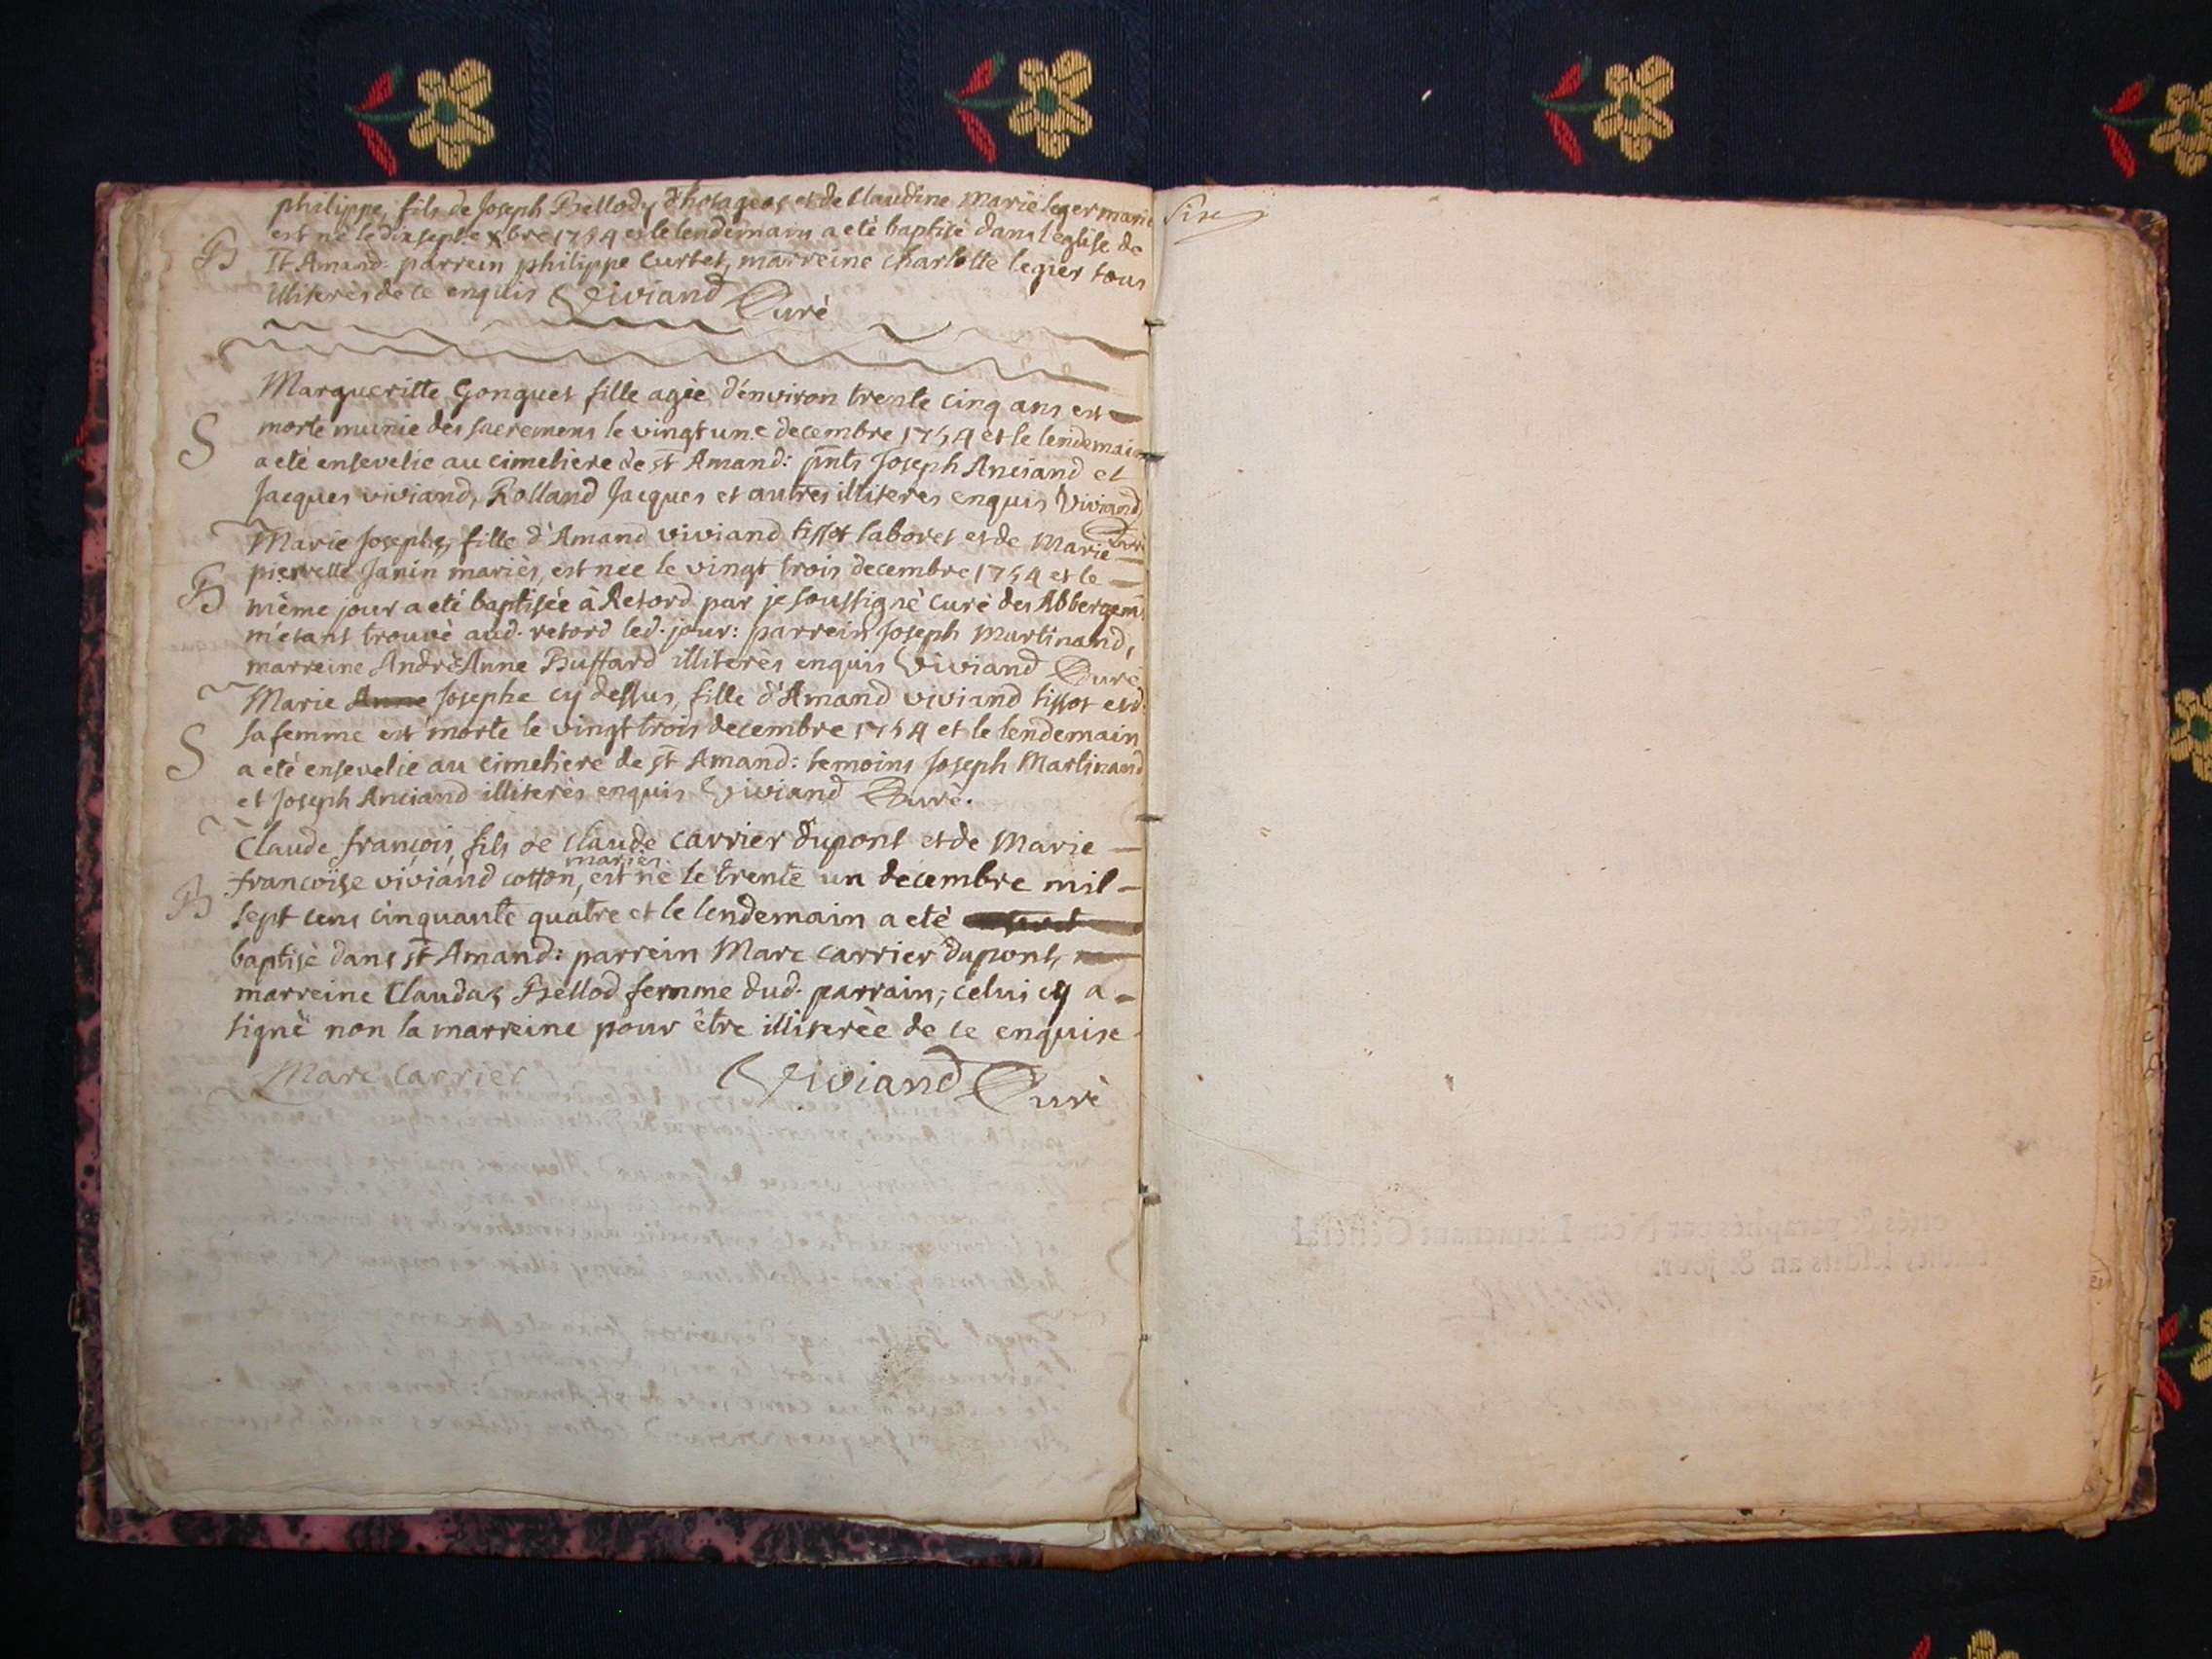 philippe, fils de Joseph Bellod, d'hotageas et de Claudine Marie leger mariè
est né le dixsept Xbre 1754 et le lendemain a etè baptisè dans l'eglise de
B
St Amand. parrein philippe Curtet, marreine charlotte legier tous
illiterès de ce enquis Viviand Curè
Margueritte Gonguet fille agèe d'environ trente cinq ans est
S
morte munie des sacremens le vingt une decembre 1754 et le lendemain
a etè ensevelie au cimetiere de st Amand: pnts Joseph Anciand et
Jacques viviand, Rolland Jacques et autres illiteres enquis Viviand
Curè
Marie Josephe, fille d'Amand viviand tissot laboret et de Marie
pierrette Janin mariès, est nee le vingt trois decembre 1754 et le
B
même jour a etè baptisée à Retord par je soussignè curè des Abbergem
m'etant trouvè aud. retord led. jour: parrein Joseph Martinand,
marreine Andrè Anne Buffard illiterès enquis Viviand Curè
Marie Anne Josephe cy dessus, fille d'Amand viviand tissot et d.
S
sa femme est morte le vingt trois decembre 1754 et le lendemain
a etè ensevelie au cimetiere de st Amand: temoins Joseph Martinand
et Joseph Anciand illiterès enquis Viviand Curè.
Claude françois, fils de Claude Carrier dupont et de Marie
mariès
françoise viviand cotton, est né le trente un decembre mil
B
sept cens cinquante quatre et le lendemain a etè
baptisè dans st Amand: parrein Marc Carrier dupont,
marreine Clauda Bellod femme dud. parrain; celui cy a
signè non la marreine pour être illiterèe de ce enquise
Marc Carrier
Viviand Curè